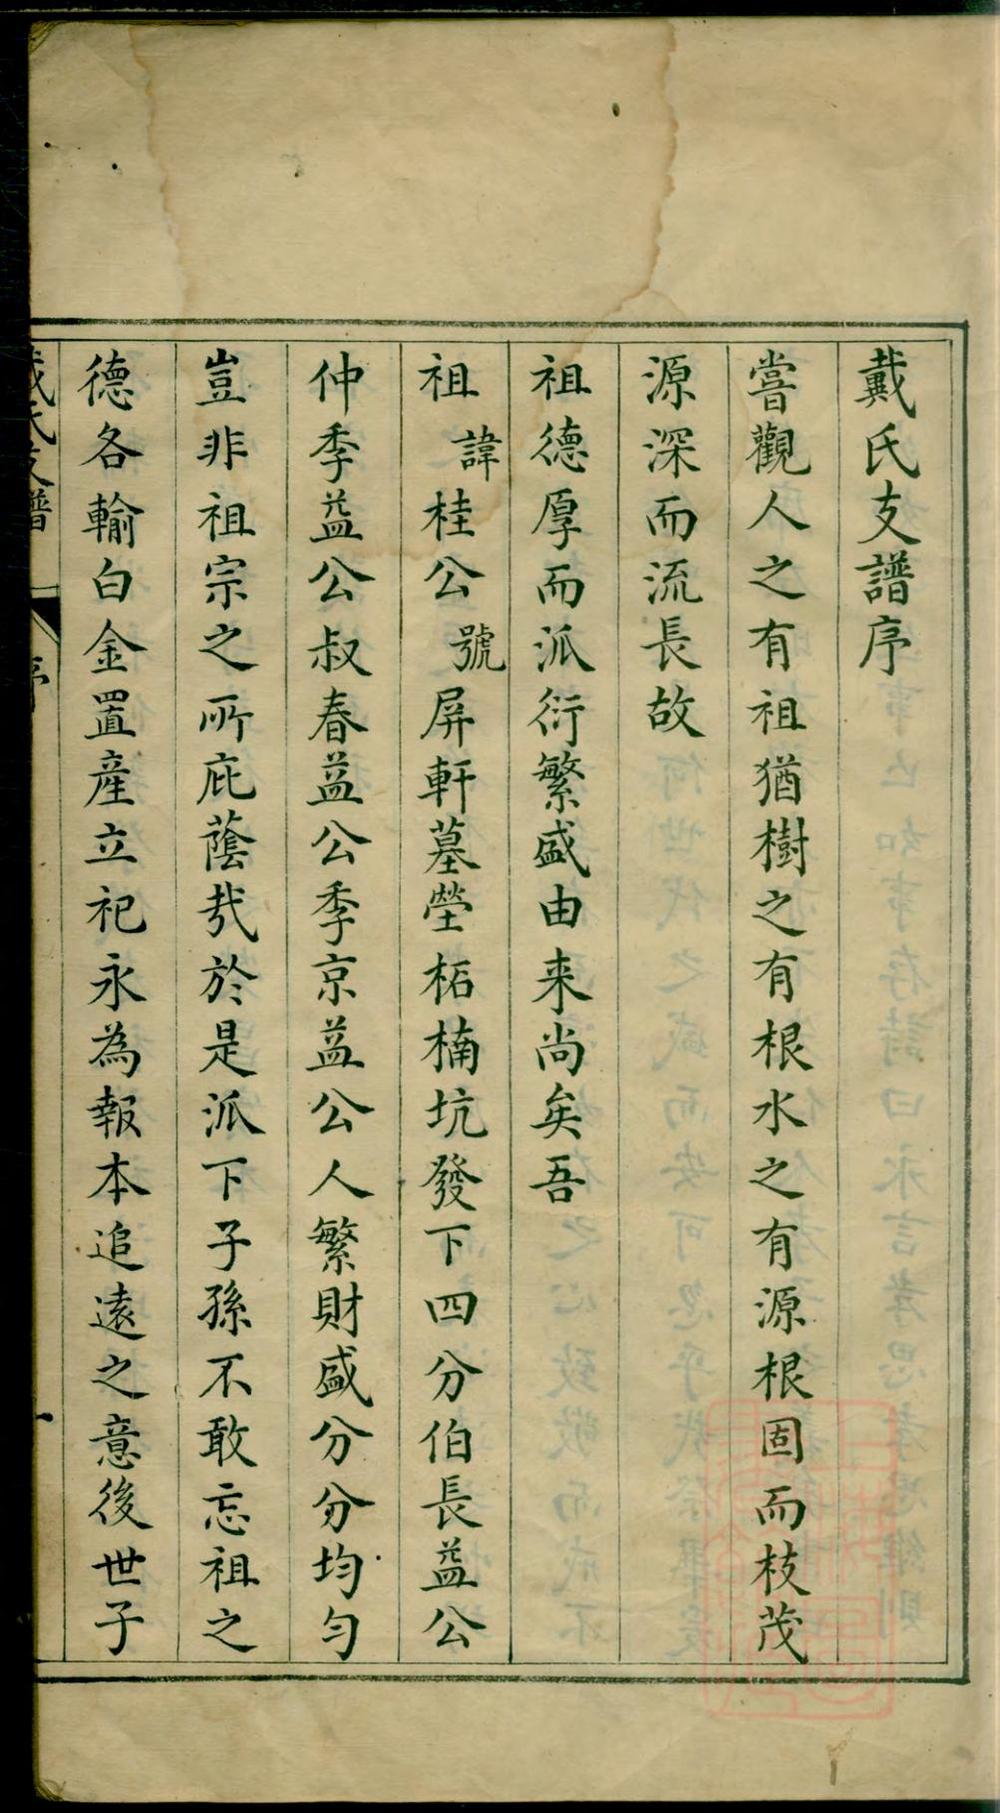 戴氏支譜序
嘗觀人之有祖猶樹之有根水之有源根固而枝茂
源深而流長故
祖德厚而派衍繁盛由来尚矣吾
祖諱桂公號屏軒墓塋柘楠坑發下四分伯長益公
仲季益公叔春益公季京益公人繁財盛分分均匀
豈非祖宗之所庇蔭㢤於是派下子孫不敢忘祖之
德各輸白金置産立祀永為報本追遠之意後世子
戴氏支譜
序
一